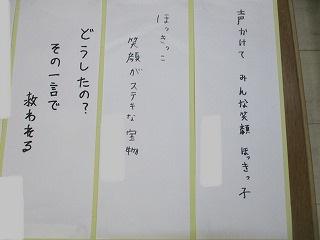 声かけて みんな笑顔 ほっきっ子
ほっきっこ
笑顔がステキな宝物
どうしたの?
その一言で
救われる